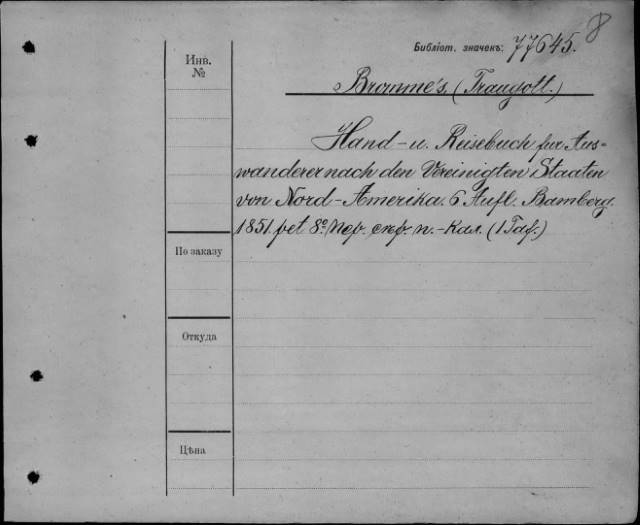 8
Библіот. значекъ: 77645.
Инв.
№
Bromme's. (Traugott.)
Hand- u. Reisebuch fur Aus=
wanderer nach den Vereinigten Staaten
von Nord-Amerika. 6 Aufl. Bamberg.
1851. pet 8º. Пер. скр. п.-кал. (1 Taf.)
По заказу
Откуда
Цѣна